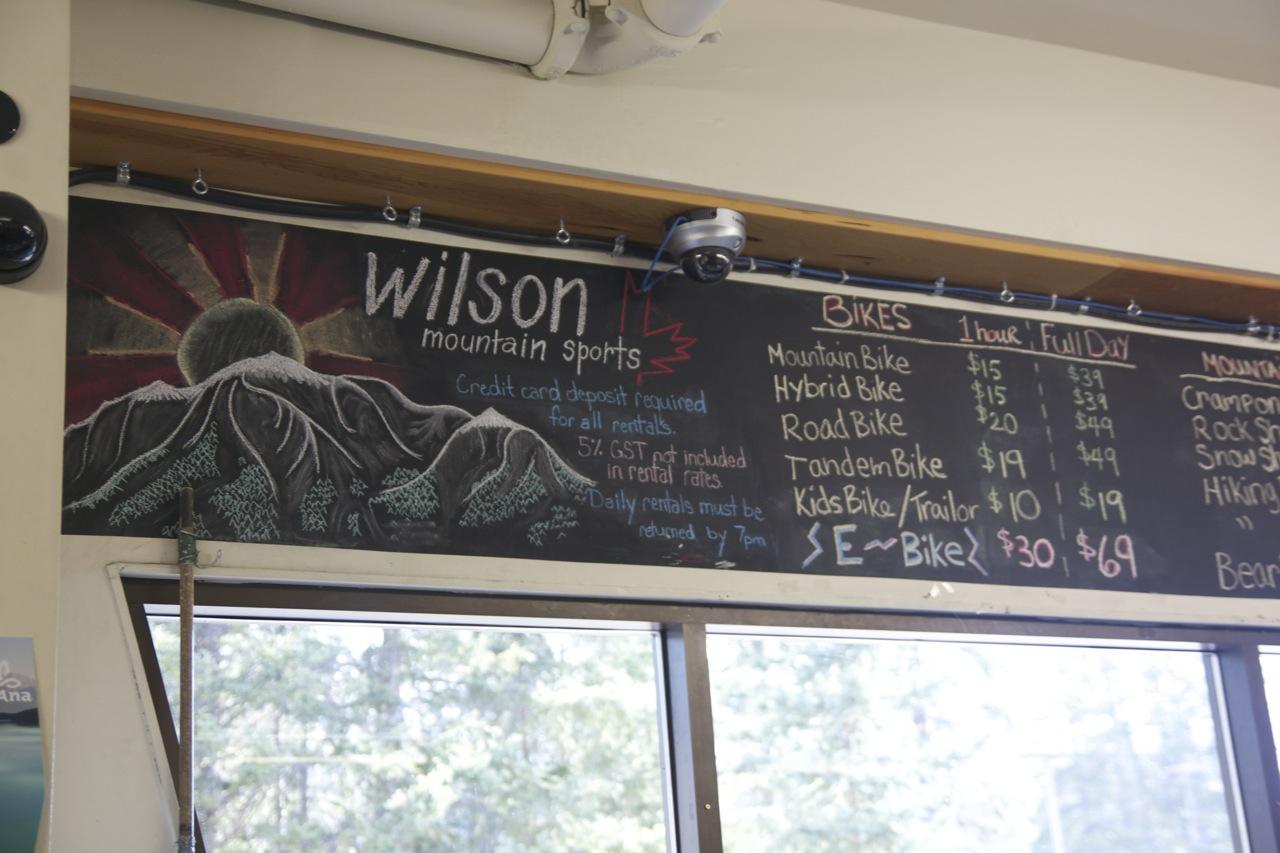 wilson
mountain sports
Credit card deposit required
for all rentals.
5% GST not included
in rental rates.
Daily rentals must be
returned by 7pm
BIKES 1 hour Full Day
Mountain Bike $15 $39
Hybrid Bike $15 $39
Road Bike $20 $49
Tandem Bike $19 $49
Kids Bike/Trailor $10 $19
E~Bike $30 $69
Rock
Hiking
"
Ana